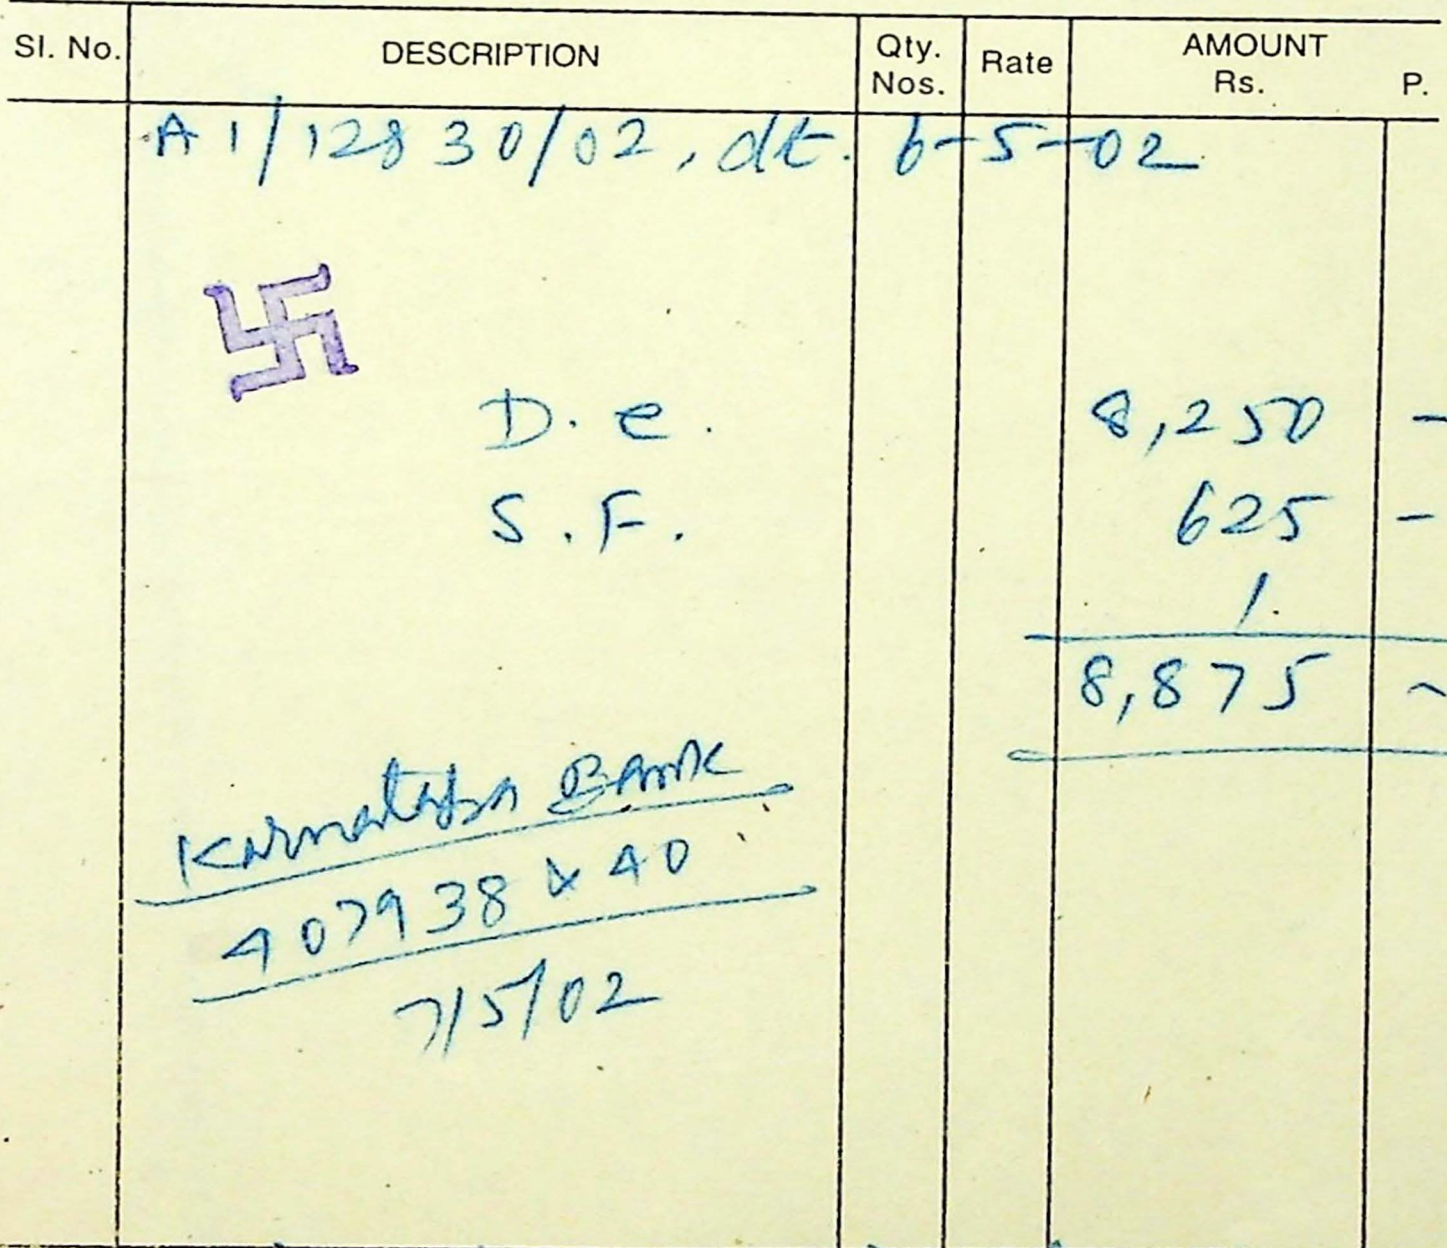 Sl. No. DESCRIPTION Qty. Nos. Rate AMOUNT Rs. P.
A1/12830/02, dt. 6-5-02
D.C. 8,250 -
S.F. 625 -
/.
8,875 ~
Karnataka Bank
407938 & 40
7/5/02